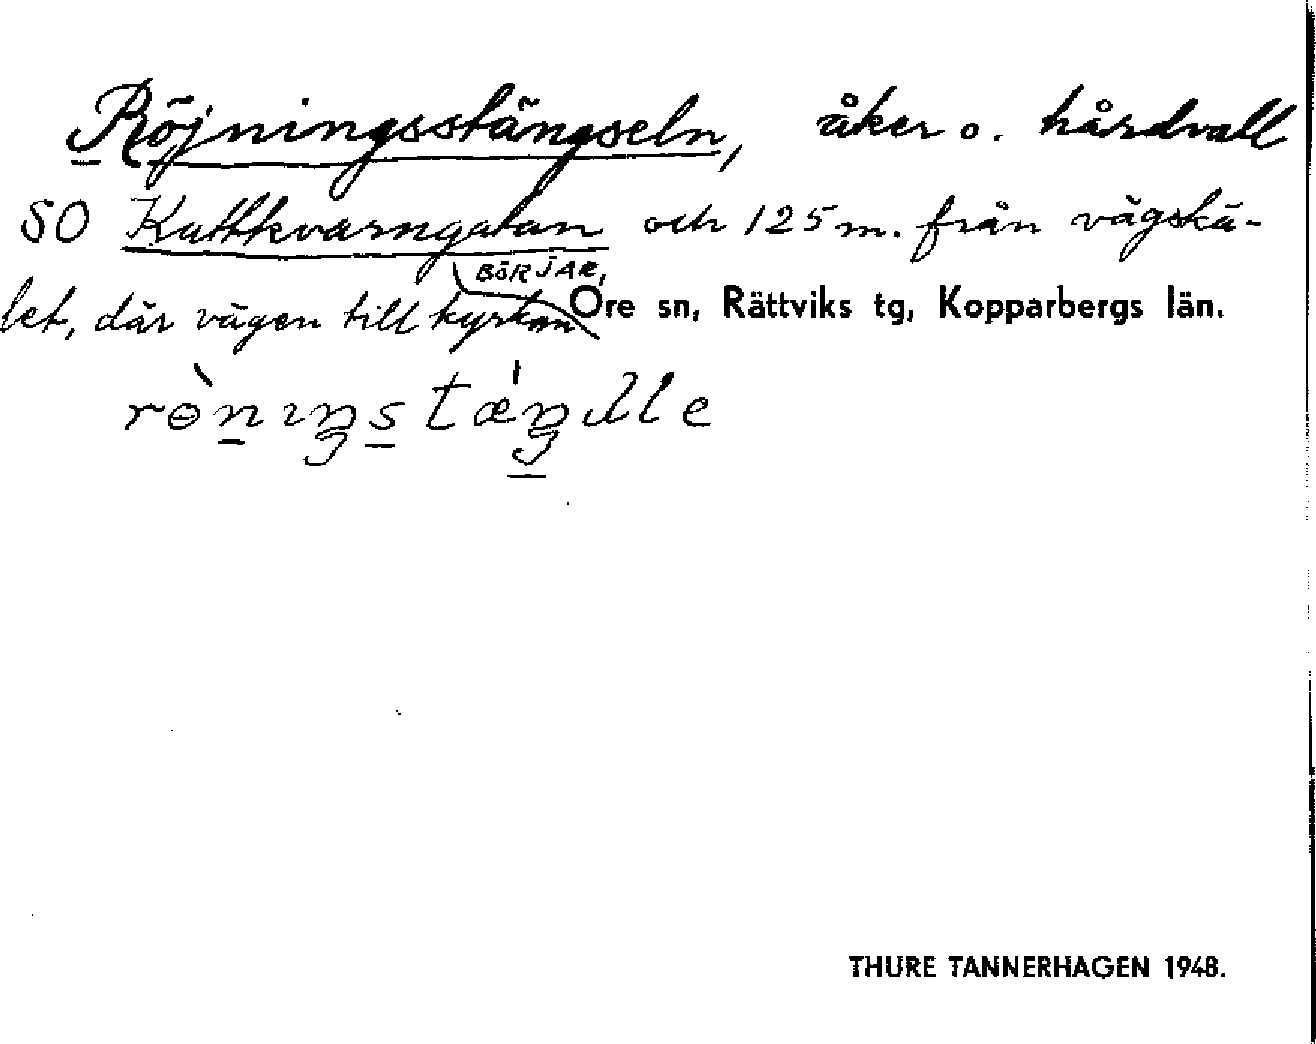 Röjningsstängseln, åker o. hårdvall
SO Kattkvarngatan och 125 m. från vägskä-
let, där vägen till kyrkan BÖRJAR, Ore sn, Rättviks tg, Kopparbergs län.
THURE TANNERHAGEN 1948.